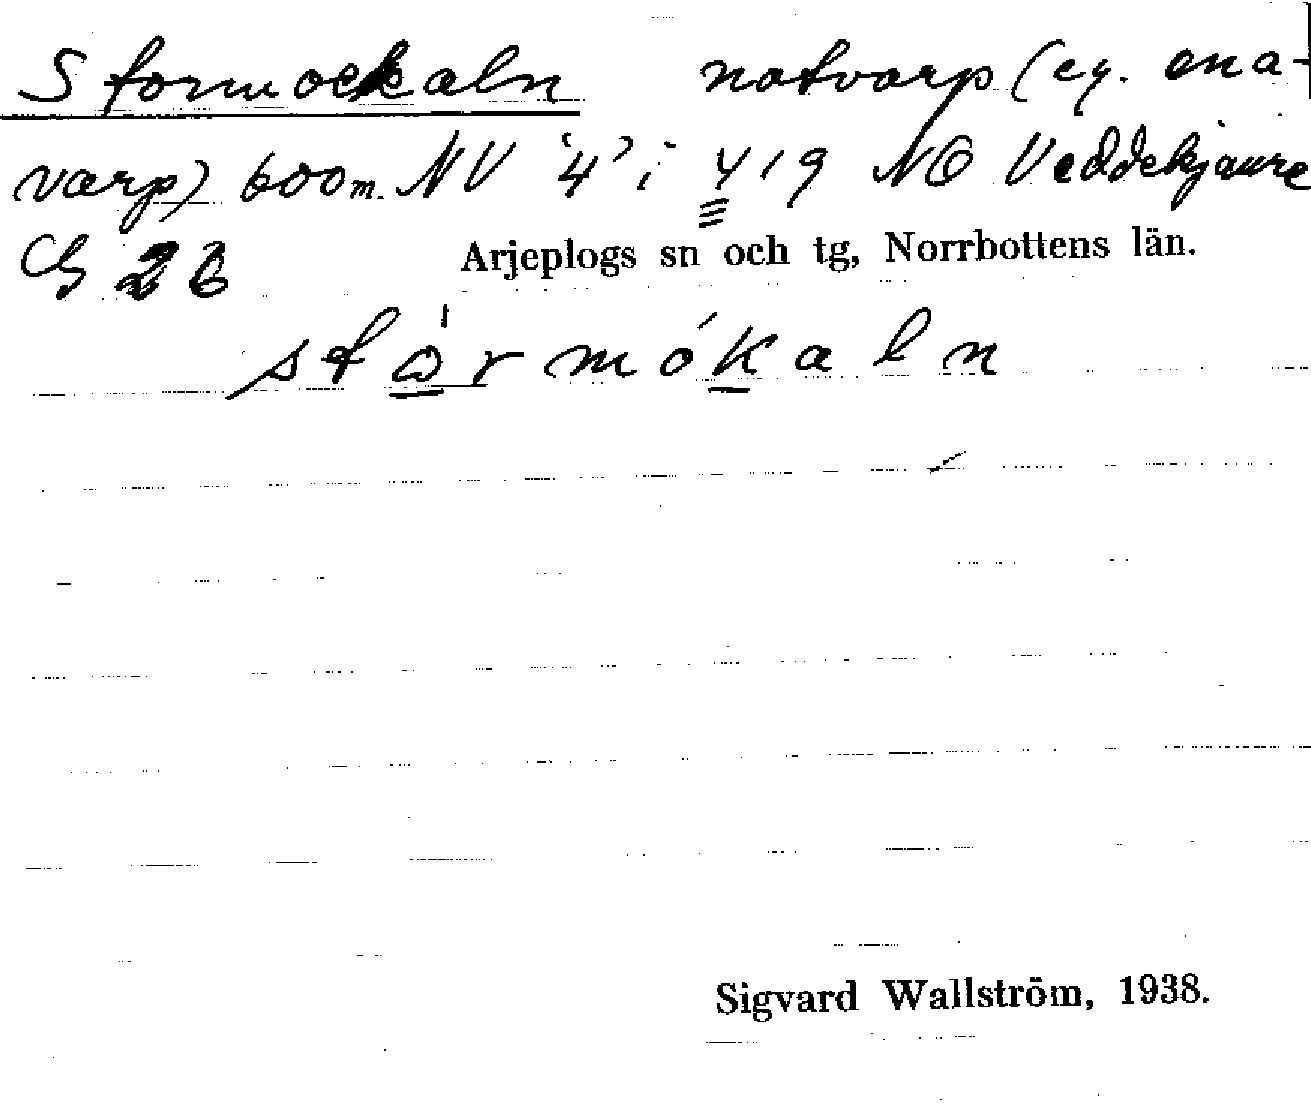 Stormockaln notvarp (eg. ena-
varp) 600 m. NV '4' i 419 NO Veddekjaure
G 26 Arjeplogs sn och tg, Norrbottens län.
stórmókaln
Sigvard Wallström, 1938.